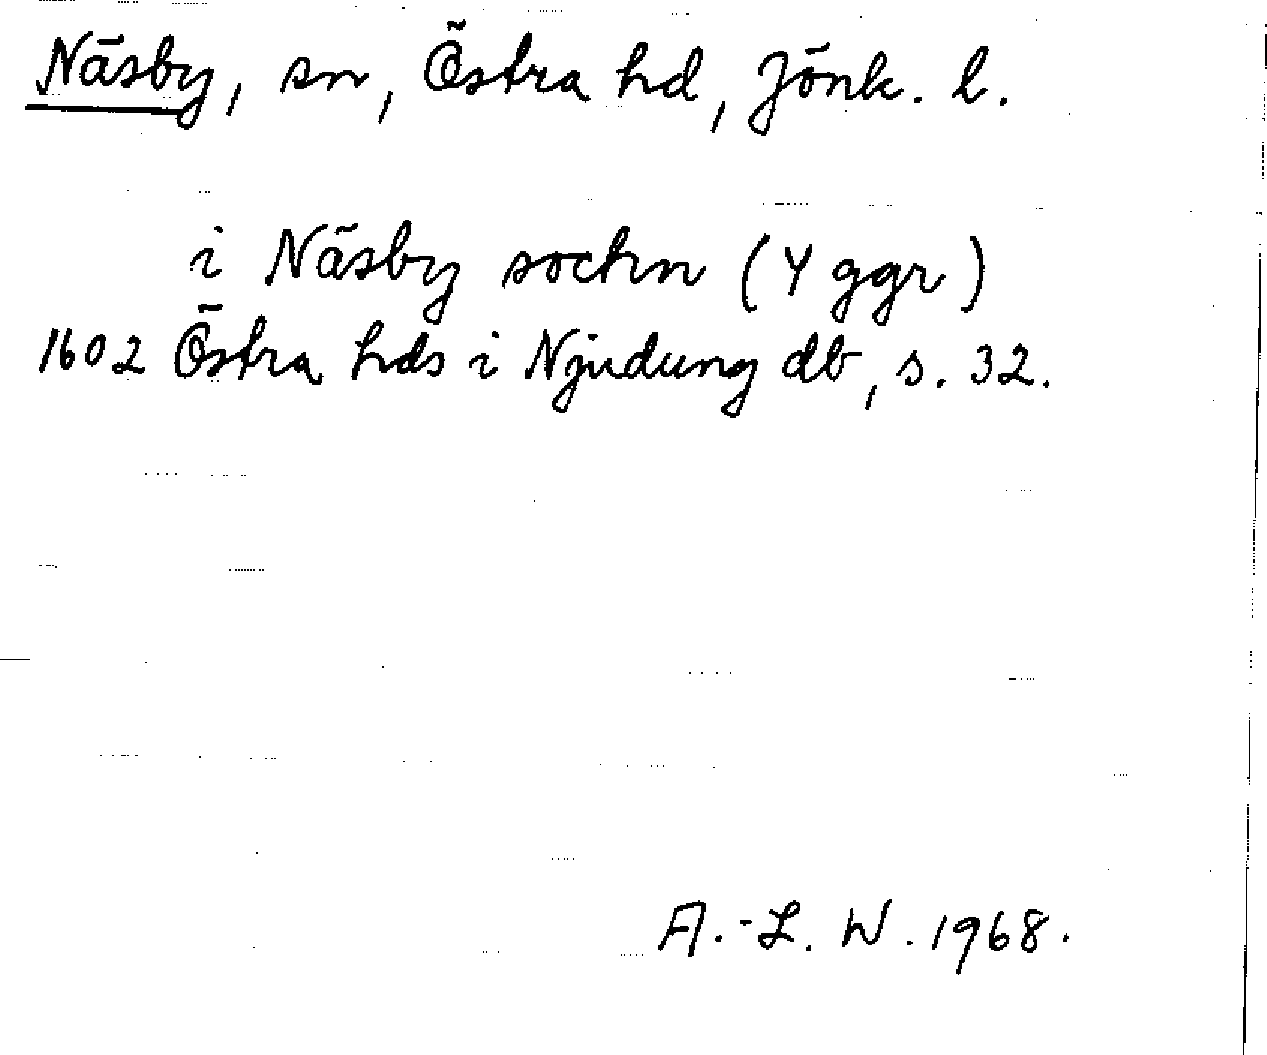 Näsby, sn, Östra hd, Jönk. l.
i Näsby sochn (4 ggr)
1602 Östra hds i Njudung db, s. 32.
A.-L. W. 1968.